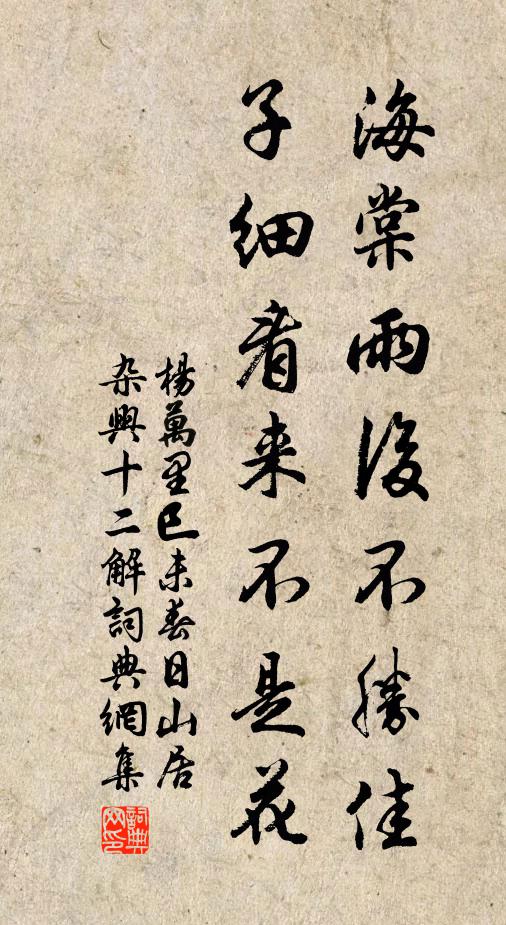 海棠雨後不勝佳
子細看来不是花
楊萬里己未春日山居
杂興十二解詞典網集
詞典
网印